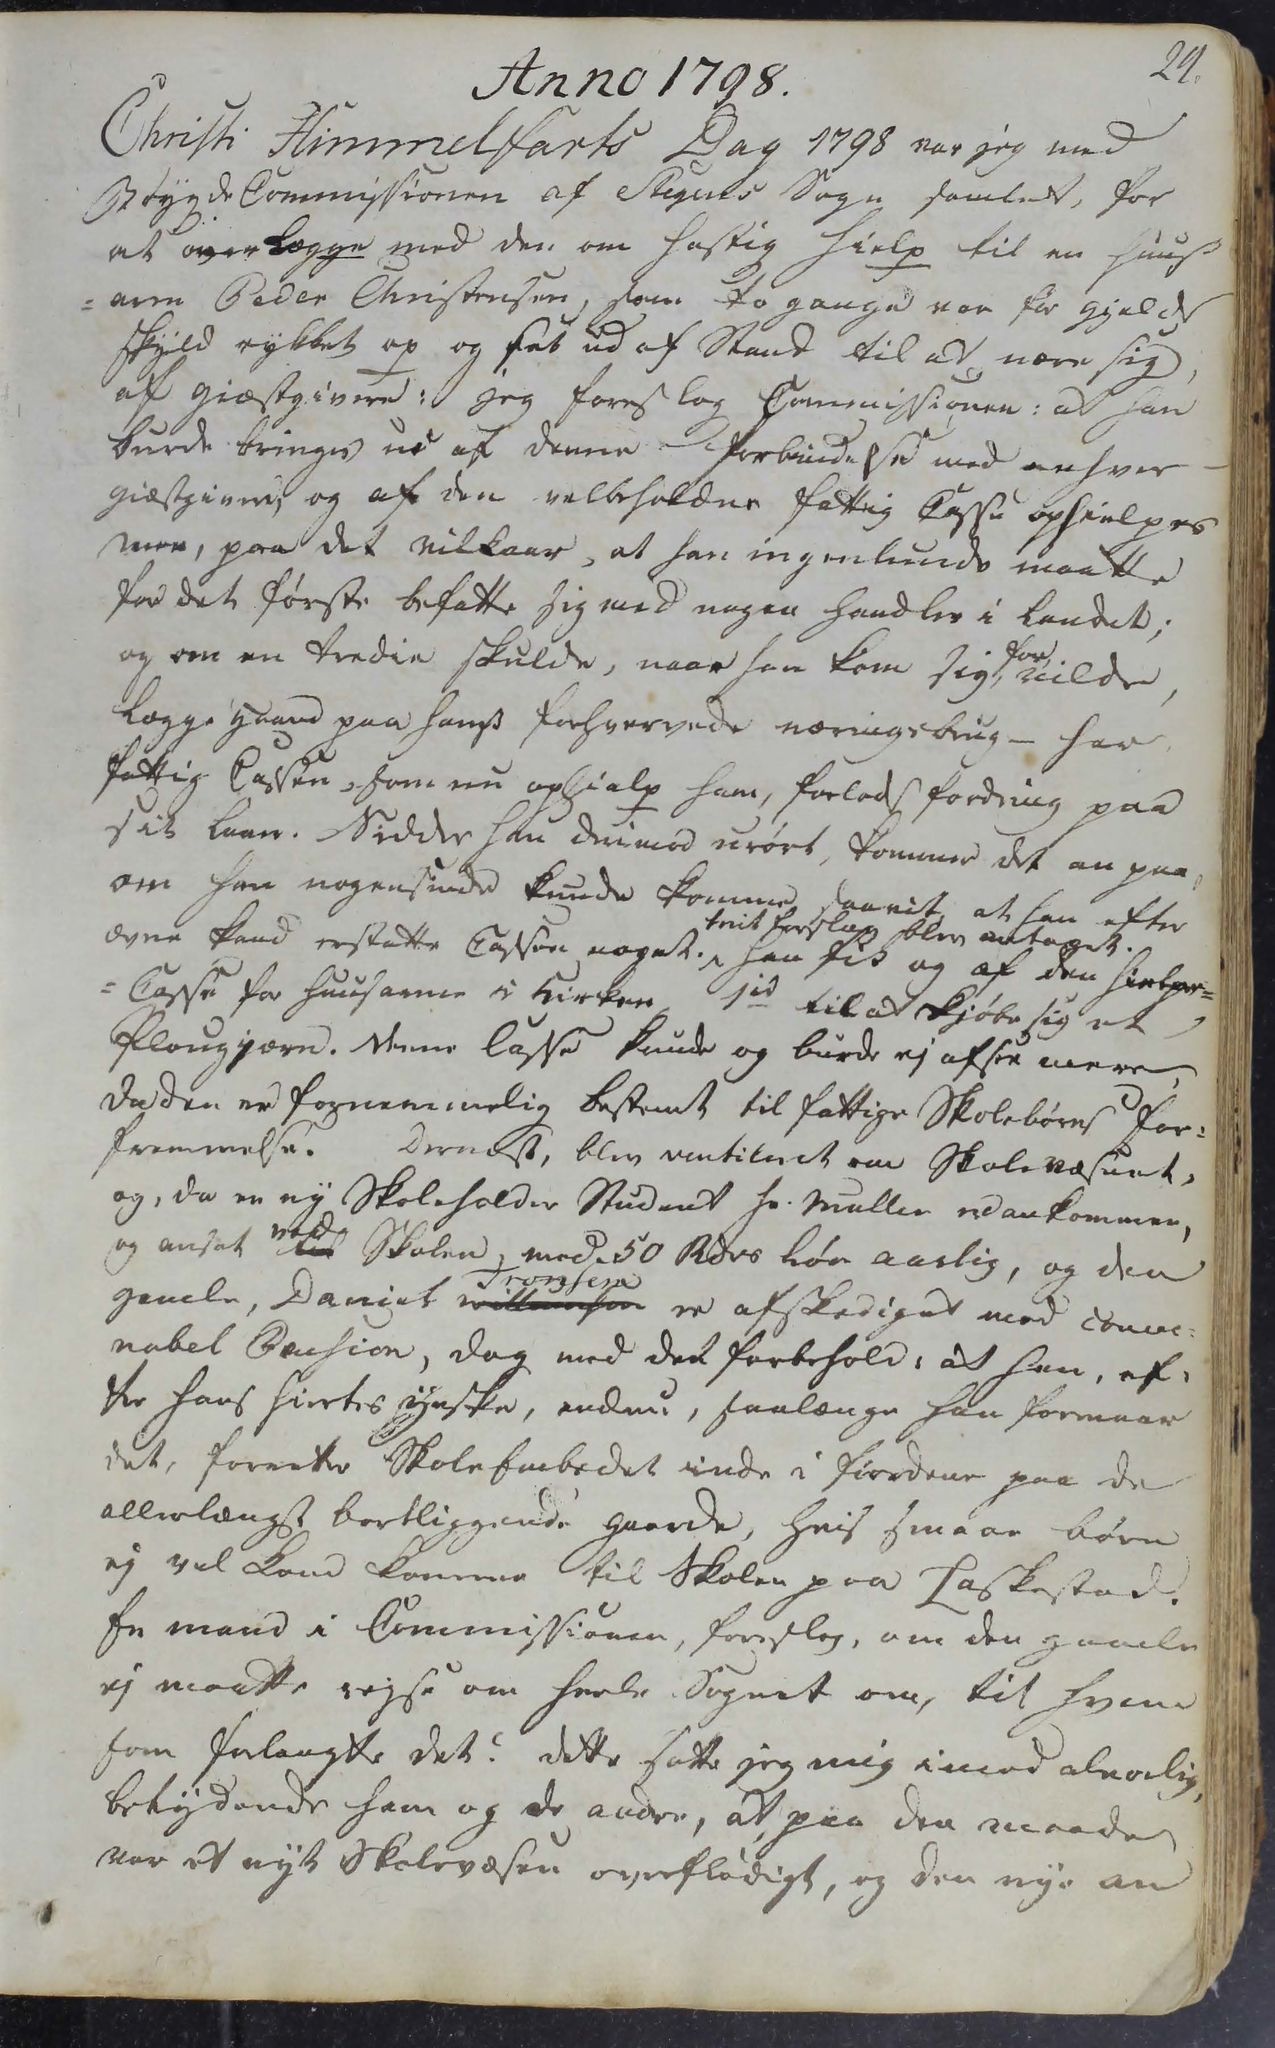 29.
Anno 1798.
Christi Himmelfarts Dag 1798 var jeg med
Bøygde Commissionen af Stegens Sogn samlet, for
at overlægge med den om hastig hielp til en huus
=arm Peder Christensen, som to gange var for gields
skyld rykket op og sat ud af Stand til at nære sig,
af giæstgivere: jeg foreslog Commissionen: at han
burde bringes ud af denne forbindelse med enhver
giæstgivere, og af den velbeholdne fattig Casse ophielpes
men, paa det vilkaar, at han ingenlunde maatte
for det første befatte sig med nogen handler i landet;
og om en tredie skulde, naar han kom sig for vilde,
lægge haand paa hans forhvervede næringsbrug - har
fattig Cassen, som nu ophialp ham, forlods fordring paa
sit laan. Sidder han derimod urørt, kommer det an paa,
om han nogensinde kunde komme saavit, at han efter
mit forslag blev antaget.
ævne kand erstatte Cassen noget. han fik og af den hielpe=
=Casse for huusarme i Kirken 1rd til at kjøbe sig et
Plougjærn. Denne Casse kunde og burde ej afsee mere,
da den er fornemmelig bestemt til fattige Skolebørns for=
fremmelse. Dernæst, blev ventileret om Skolevæsenet,
og, da en ny Skoleholder Student hr. Muller er ankommen,
og ansat ved Skolen, med 50 Rdrs løn aarlig, og den
Tronsen
gamle, Daniel er afskediget med conve=
nabel Pension, dog med det forbehold: at han, ef=
ter hans hiertes ynske, endnu, saalænge han formaar
det, forrette Skole Embedet inde i fiordene paa de
allerlængst bortliggende gaarde, hvis smaae børn
ej vel kand komme til Skolen paa Laskestad.
En mand i Commissionen, foreslog, om den gamle
ej maatte rejse om heele Sognet om, til hvem
som forlangte det? dette satte jeg mig imod alvorlig,
betydende ham og de andre, at paa den maade
var et nyt Skolevæsen overflødigt, og den nye an